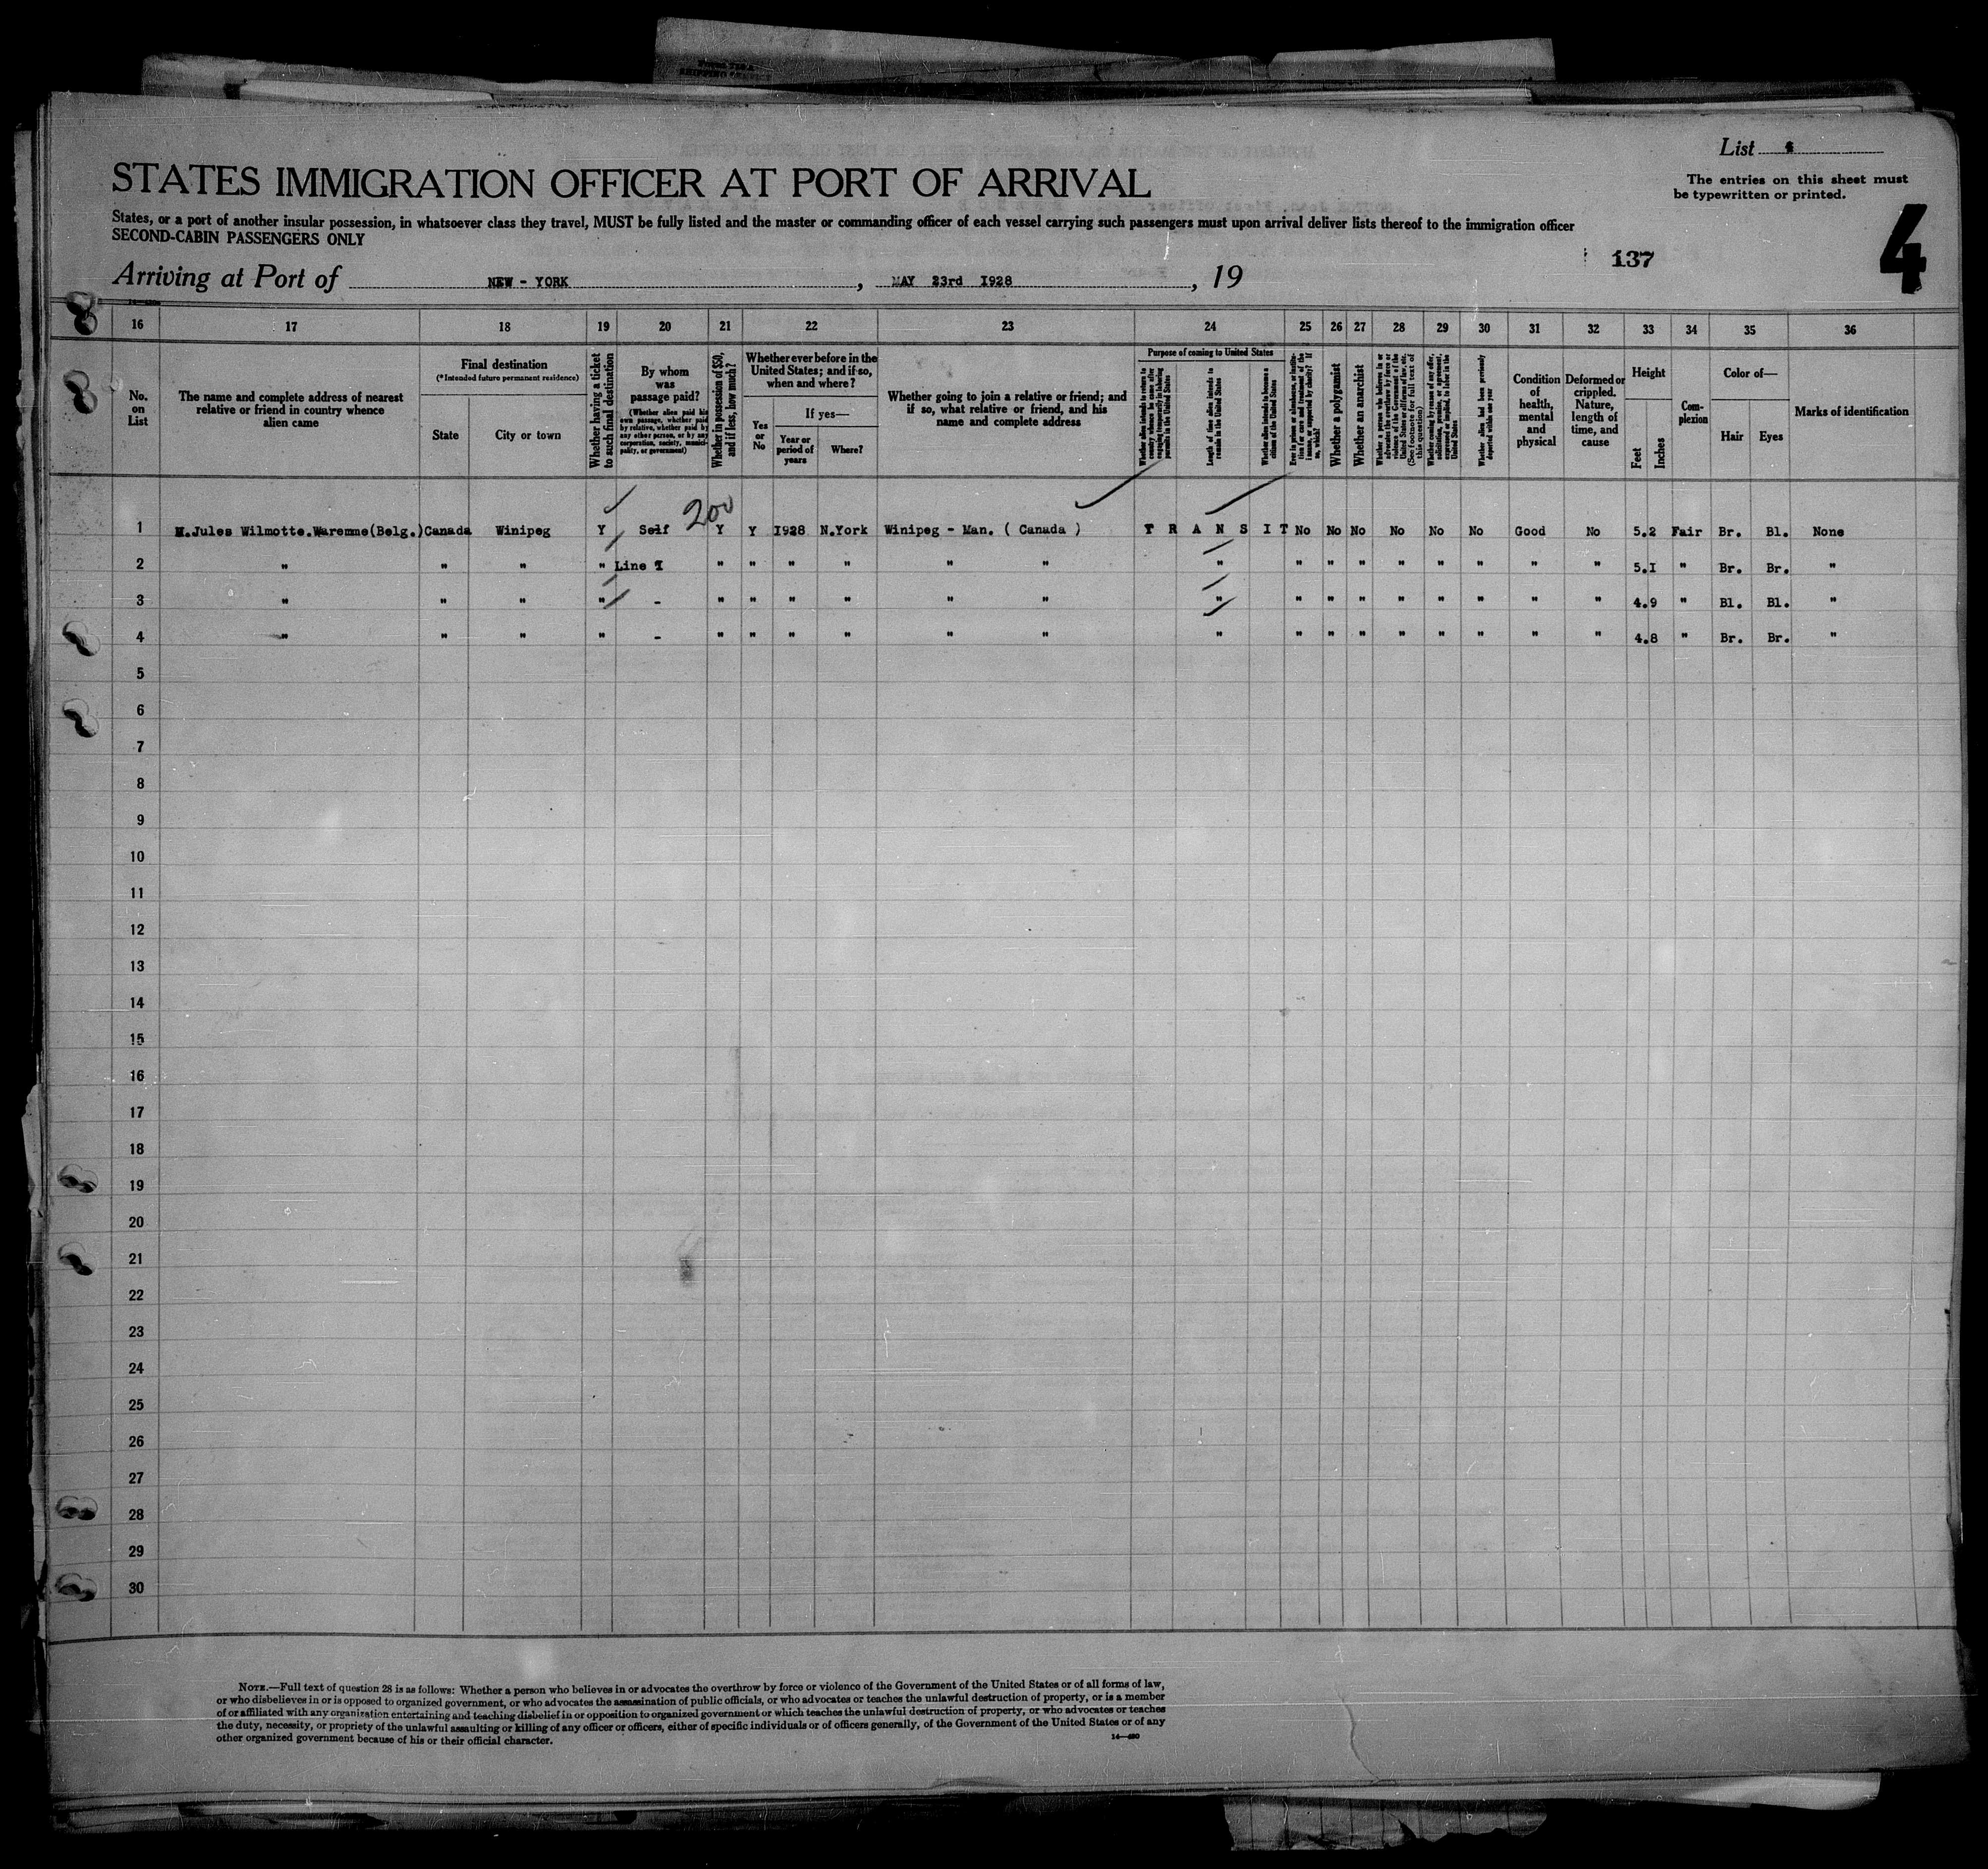 List 4
The entries on this sheet must
be typewritten or printed.
STATES IMMIGRATION OFFICER AT PORT OF ARRIVAL
4
States, or a port of another insular possession, in whatsoever class they travel, MUST be fully listed and the master or commanding officer of each vessel carrying such passengers must upon arrival deliver lists thereof to the immigration officer
SECOND-CABIN PASSENGERS ONLY
137
Arriving at Port of NEW - YORK , MAY 23rd 1928 , 19
16 17 18 19 20 21 22 23 24 25 26 27 28 29 30 31 32 33 34 35 36
No. on List
The name and complete address of nearest relative or friend in country whence alien came
Final destination
(*Intended future permanent residence)
State
City or town
Whether having a ticket to such final destination
By whom was passage paid?
(Whether alien paid his own passage, whether paid by relative, whether paid by any other person, or by any corporation, society, municipality, or government)
Whether in possession of $50, and if less, how much?
Whether ever before in the United States; and if so, when and where?
Yes or No
If yes—
Year or period of years
Where?
Whether going to join a relative or friend; and if so, what relative or friend, and his name and complete address
Purpose of coming to United States
Whether alien intends to return to country whence he came after engaging temporarily in laboring pursuits in the United States
Length of time alien intends to remain in the United States
Whether alien intends to become a citizen of the United States
Ever in prison or almshouse, or institution for care and treatment of the insane, or supported by charity? If so, which?
Whether a polygamist
Whether an anarchist
Whether a person who believes in or advocates the overthrow by force or violence of the Government of the United States or all forms of law, etc. (See footnote for full text of this question)
Whether coming by reason of any offer, solicitation, promise, or agreement, expressed or implied, to labor in the United States
Whether alien had been previously deported within one year
Condition of health, mental and physical
Deformed or crippled. Nature, length of time, and cause
Height
Feet
Inches
Complexion
Color of—
Hair
Eyes
Marks of identification
200
1 M.Jules Wilmotte.Waremme(Belg.) Canada Winipeg Y Self Y Y 1928 N.York Winipeg - Man. ( Canada ) T R A N S I T No No No No No No Good No 5.2 Fair Br. Bl. None
2 " " " " Line 1 " " " " " " " " " " " " " " " 5.1 " Br. Br. "
3 " " " " - " " " " " " " " " " " " " " " 4.9 " Bl. Bl. "
4 " " " " - " " " " " " " " " " " " " " " 4.8 " Br. Br. "
5
6
7
8
9
10
11
12
13
14
15
16
17
18
19
20
21
22
23
24
25
26
27
28
29
30
NOTE.—Full text of question 28 is as follows: Whether a person who believes in or advocates the overthrow by force or violence of the Government of the United States or of all forms of law,
or who disbelieves in or is opposed to organized government, or who advocates the assassination of public officials, or who advocates or teaches the unlawful destruction of property, or is a member
of or affiliated with any organization entertaining and teaching disbelief in or opposition to organized government or which teaches the unlawful destruction of property, or who advocates or teaches
the duty, necessity, or propriety of the unlawful assaulting or killing of any officer or officers, either of specific individuals or of officers generally, of the Government of the United States or of any
other organized government because of his or their official character.
14—480